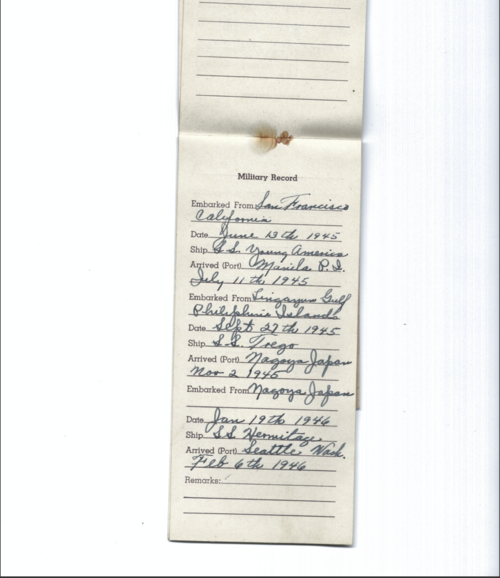 Military Record
Embarked From San Francisco
California
Date June 13th 1945
Ship S.S. Young America
Arrived (Port) Manila P.I.
July 11th 1945
Embarked From Lingayen Gulf
Philiphine Islands
Date Sept 27th 1945
Ship S.S. Trego
Arrived (Port) Nagoya Japan
Nov 2 1945
Embarked From Nagoya Japan
Date Jan 19th 1946
Ship SS Hermitage
Arrived (Port) Seattle Wash.
Feb 6th 1946
Remarks: